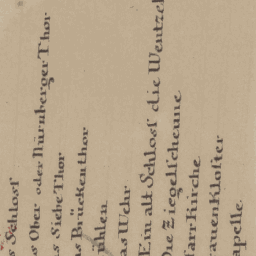 s Schloſſ
s Ober oder Nürnberger Thor
s Siebe Thor
s Brückenthor
ühlen
as Wehr
Ein alt Schloſſ die Wentzel
ie Ziegelſcheune
farr Kirche
auen Kloſter
apelle.